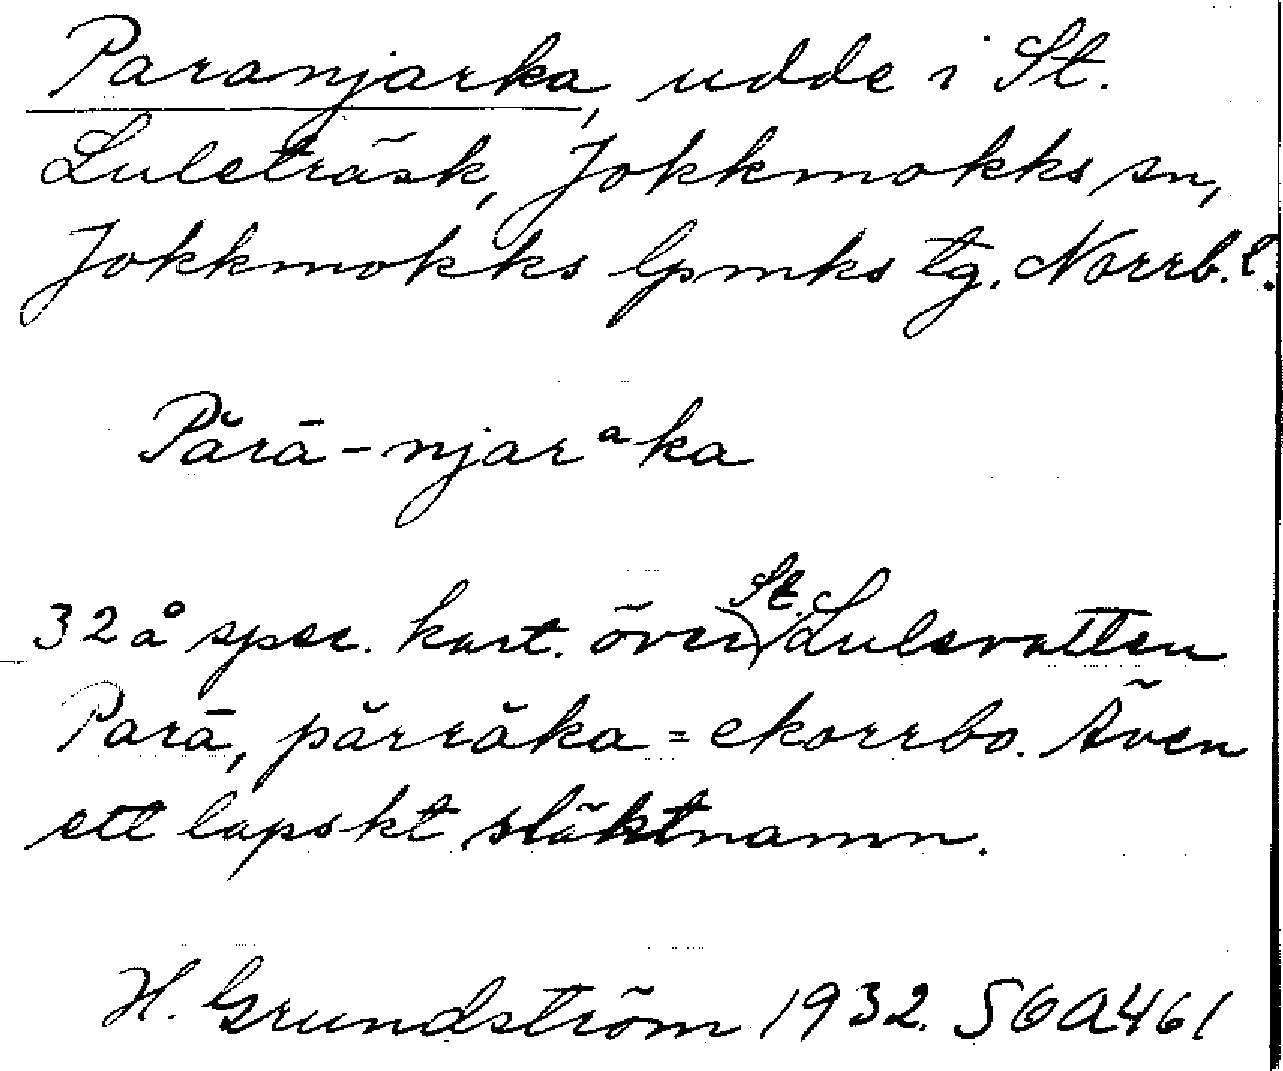 Paranjarka, udde i St.
Luleträsk, Jokkmokks sn,
Jokkmokks lpmks tg. Norrb. l.
Părā-njarᵃka
32 å spec. kart. över St. Lulevatten
Parā, părrăka = ekorrbo. Även
ett lapskt släktnamn.
H. Grundström 1932. SOA461